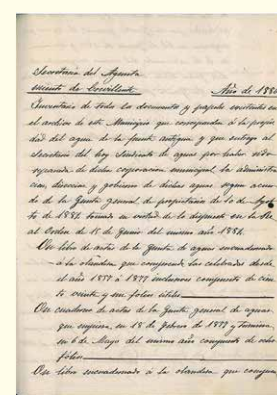 Secretaria del Ayunta
miento de Crevillente Año de 188
Inventario de todos los documentos y papeles existentes en
el archivo de este Municipio que corresponden á la propie
dad del agua de la fuente antigua y que entrego al
Secretario del hoy Sindicato de aguas por haber sido
separada de dicha corporacion municipal la administra
cion, direccion y gobierno de dichas aguas segun acuer
do de la Junta general de propietarios de 10 de Agos
to de 1882 tomado en virtud de lo dispuesto en la Re
al Orden de 15 de Junio del mismo año 1882.
Un libro de actas de la Junta de aguas encuadernado
á la olandesa, que comprende las celebradas desde
el año 1857 á 1877 inclusives compuesto de cien
to veinte y un folios útiles
Un cuaderno de actas de la Junta general de aguas
que empieza en 18 de Febrero de 1877 y termina
en 6 de Mayo del mismo año compuesto de ocho
folios
Un libro encuadernado á la olandesa que